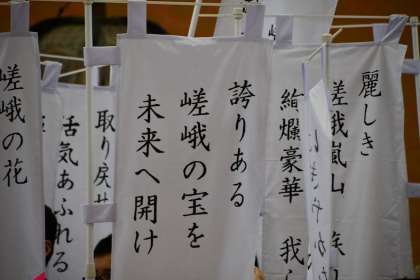 麗しき
嵯峨嵐山
絢爛豪華 我
誇りある
嵯峨の宝を
未来へ開け
取り戻せ
活気あふれる
嵯峨の花